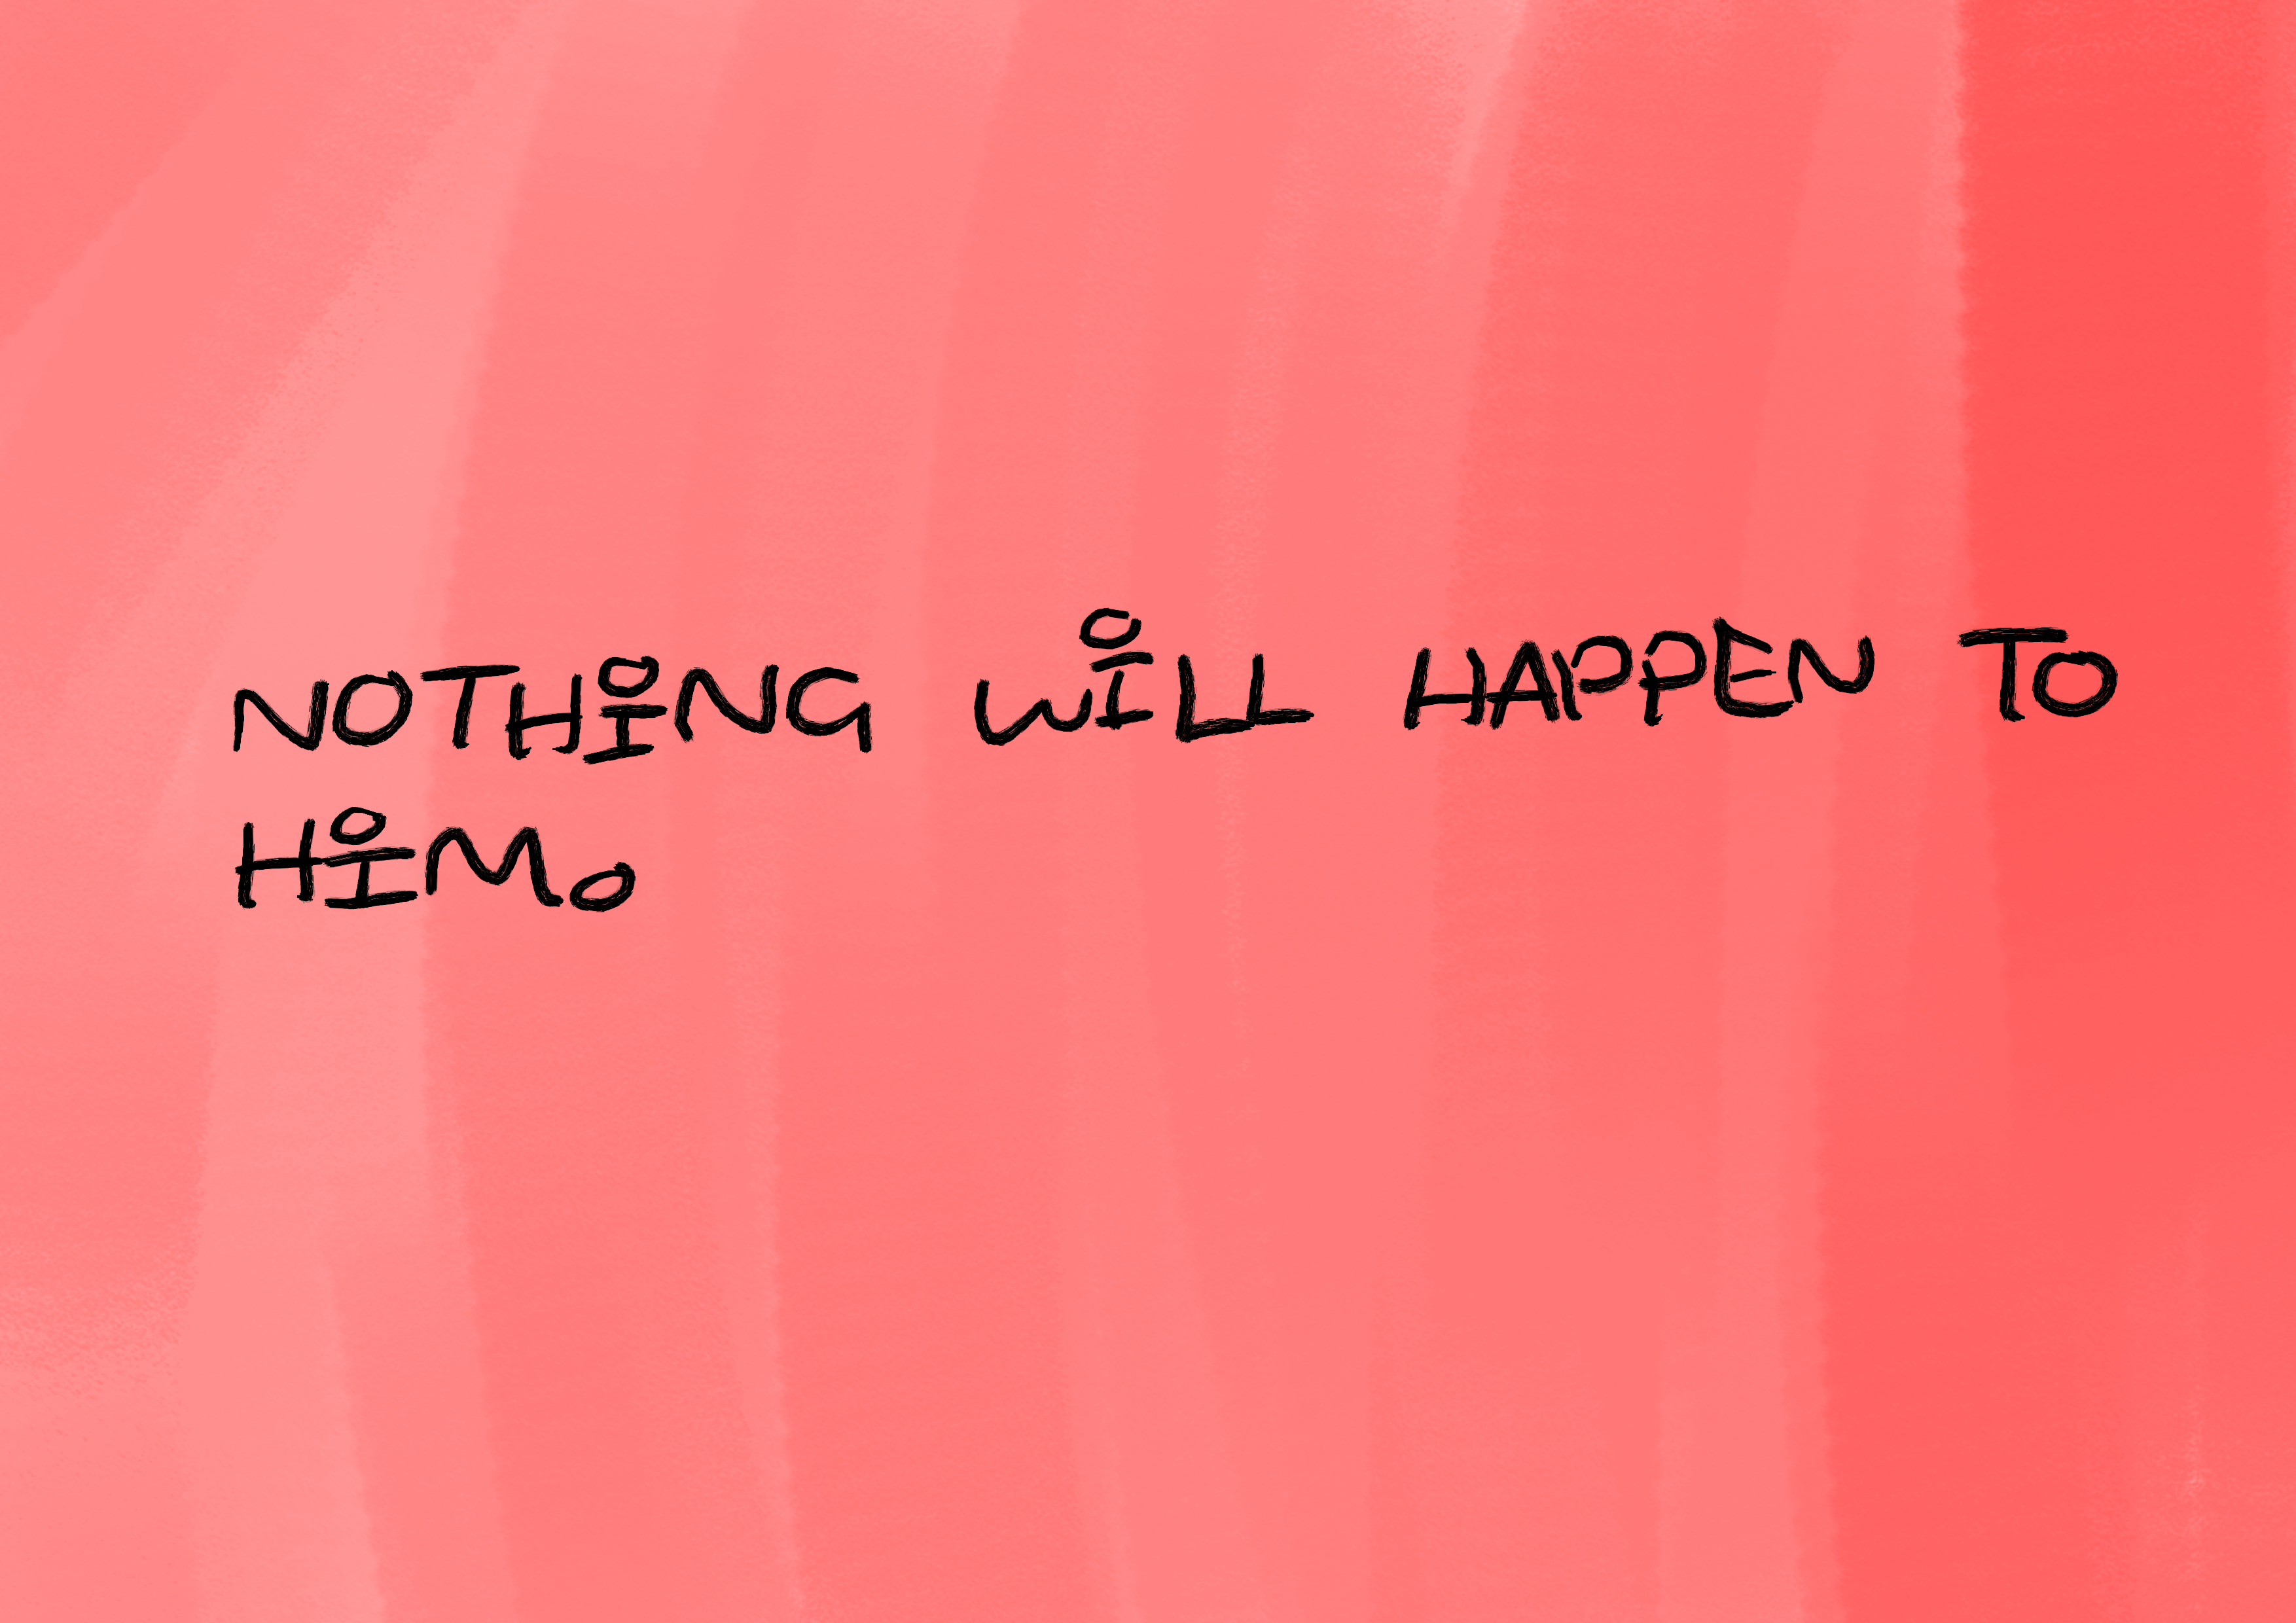 NOTHING WILL HAPPEN TO
HIM.